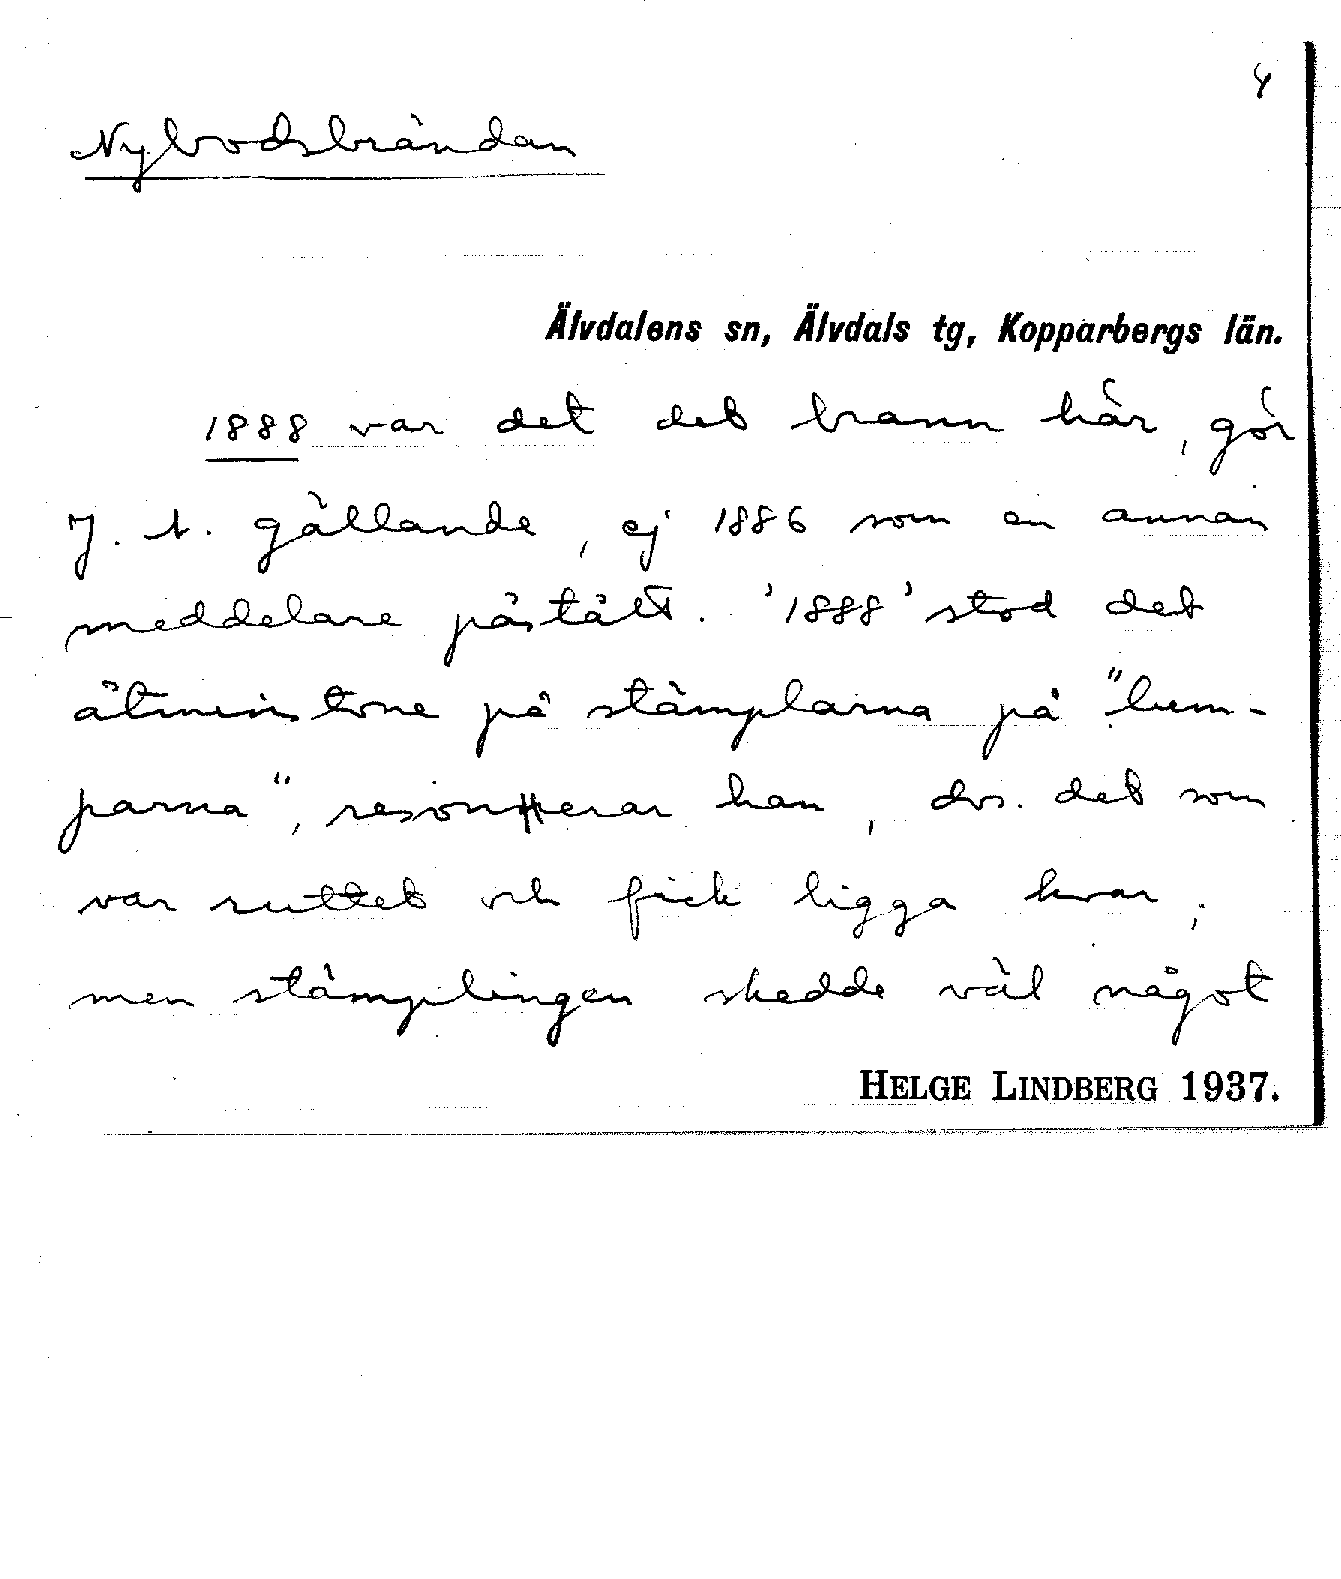 4
Nybodsbrändan
Älvdalens sn, Älvdals tg, Kopparbergs län.
1888 var det det brann här, gör
J. t. gällande, ej 1886 som en annan
meddelare påstått. '1888' stod det
åtminstone på stämplarna på "lum-
parna", resonerar han, dvs. det som
var ruttet och fick ligga kvar;
men stämplingen skedde väl något
HELGE LINDBERG 1937.